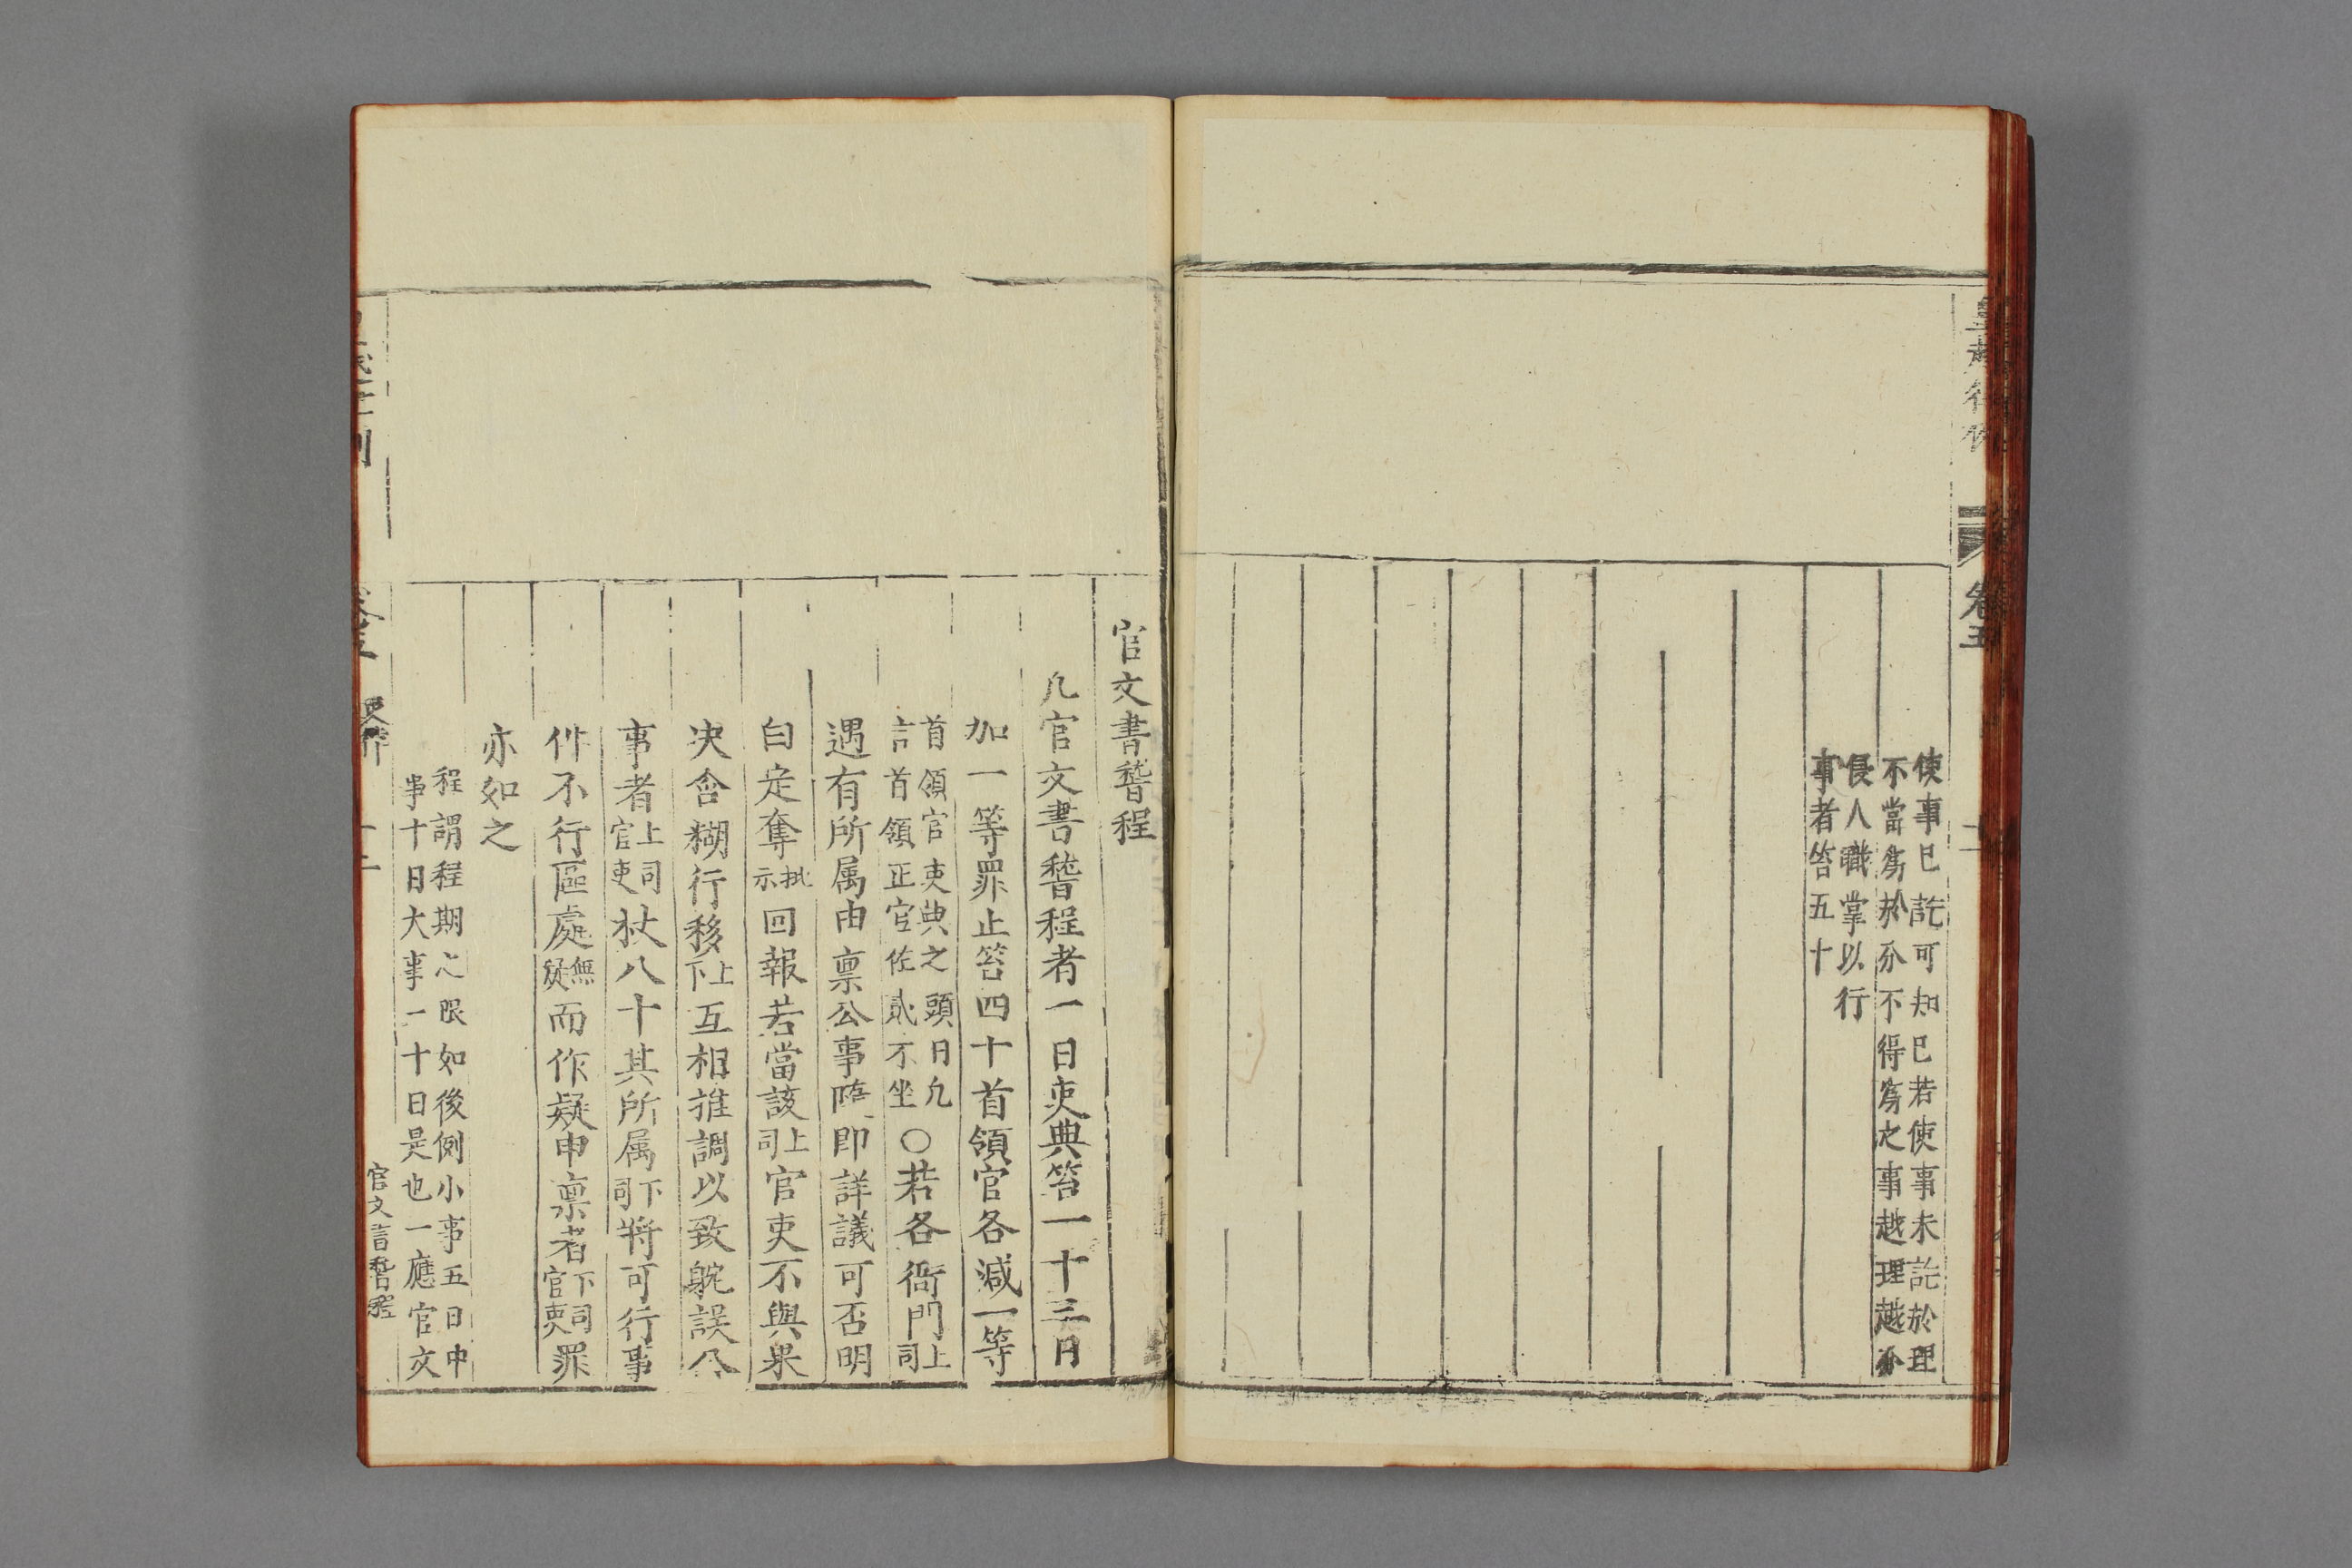 卷五
使事已訖可知已若使事未訖於理
不當爲於分不得爲之事越理越分
侵人職掌以行
事者笞五十
官文書稽程
凡官文書稽程者一日吏典笞一十三日
加一等罪止笞四十首領官各減一等
首領官吏典之頭目凢
言首領正官佐貳不坐
○若各衙門上司
遇有所属申禀公事隨即詳議可否明
白定奪批示回報若當該上司官吏不與果
决含糊行移上下互相推調以致躭誤公
事者上司官吏杖八十其所属下司將可行事
件不行區處無疑而作疑申禀者下司官吏罪
亦如之
程謂程期之限如後例小事五日中
事十日大事一十日是也一應官文
官文書稽程